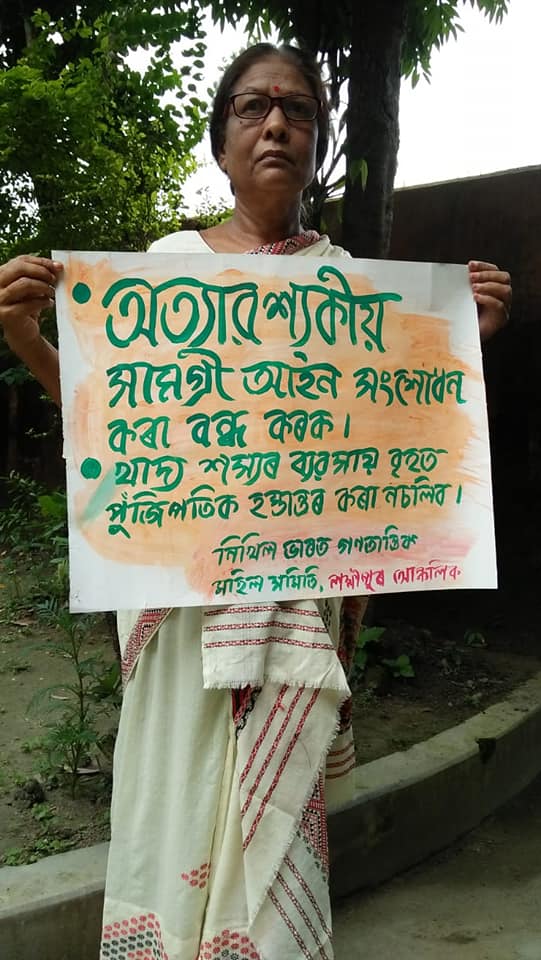 • অত্যাৱশ্যকীয়
সামগ্ৰী আইন সংশোধন
কৰা বন্ধ কৰক।
• খাদ্য শস্যৰ ব্যৱসায় বৃহত
পুঁজিপতিক হস্তান্তৰ কৰা নচলিব।
নিখিল ভাৰত গণতান্ত্ৰিক
মহিলা সমিতি, লখীমপুৰ আঞ্চলিক